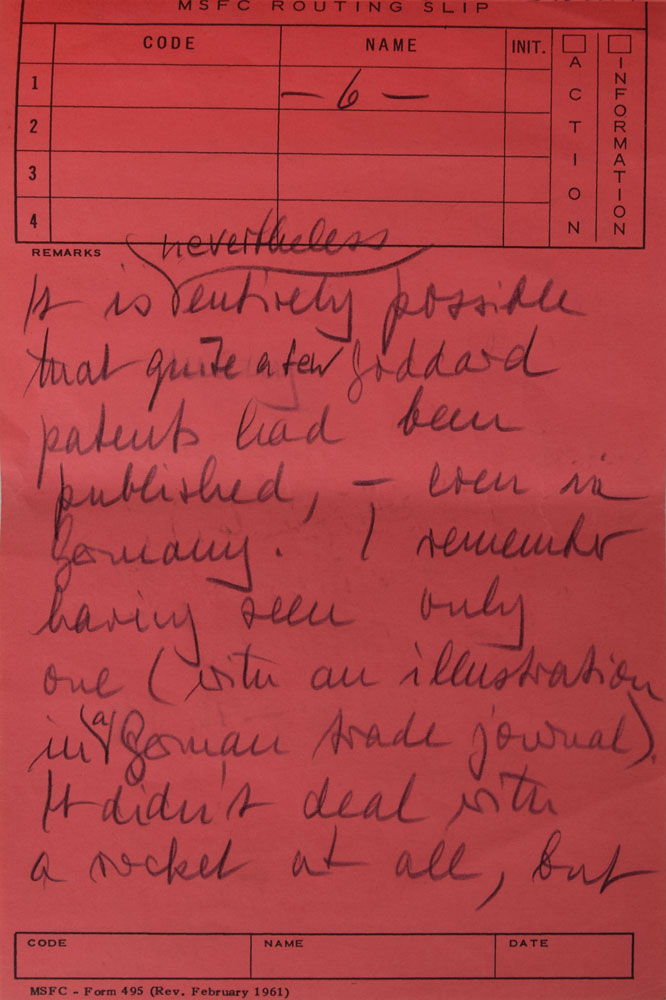 MSFC ROUTING SLIP
CODE NAME INIT. ACTION INFORMATION
1 - 6 -
2
3
4
REMARKS
nevertheless
It is entirely possible
that quite a few Goddard
patents had been
published, - even in
Germany. I remember
having seen only
one (with an illustration
in a German trade journal).
It didn't deal with
a rocket at all, but
CODE NAME DATE
MSFC - Form 495 (Rev. February 1961)